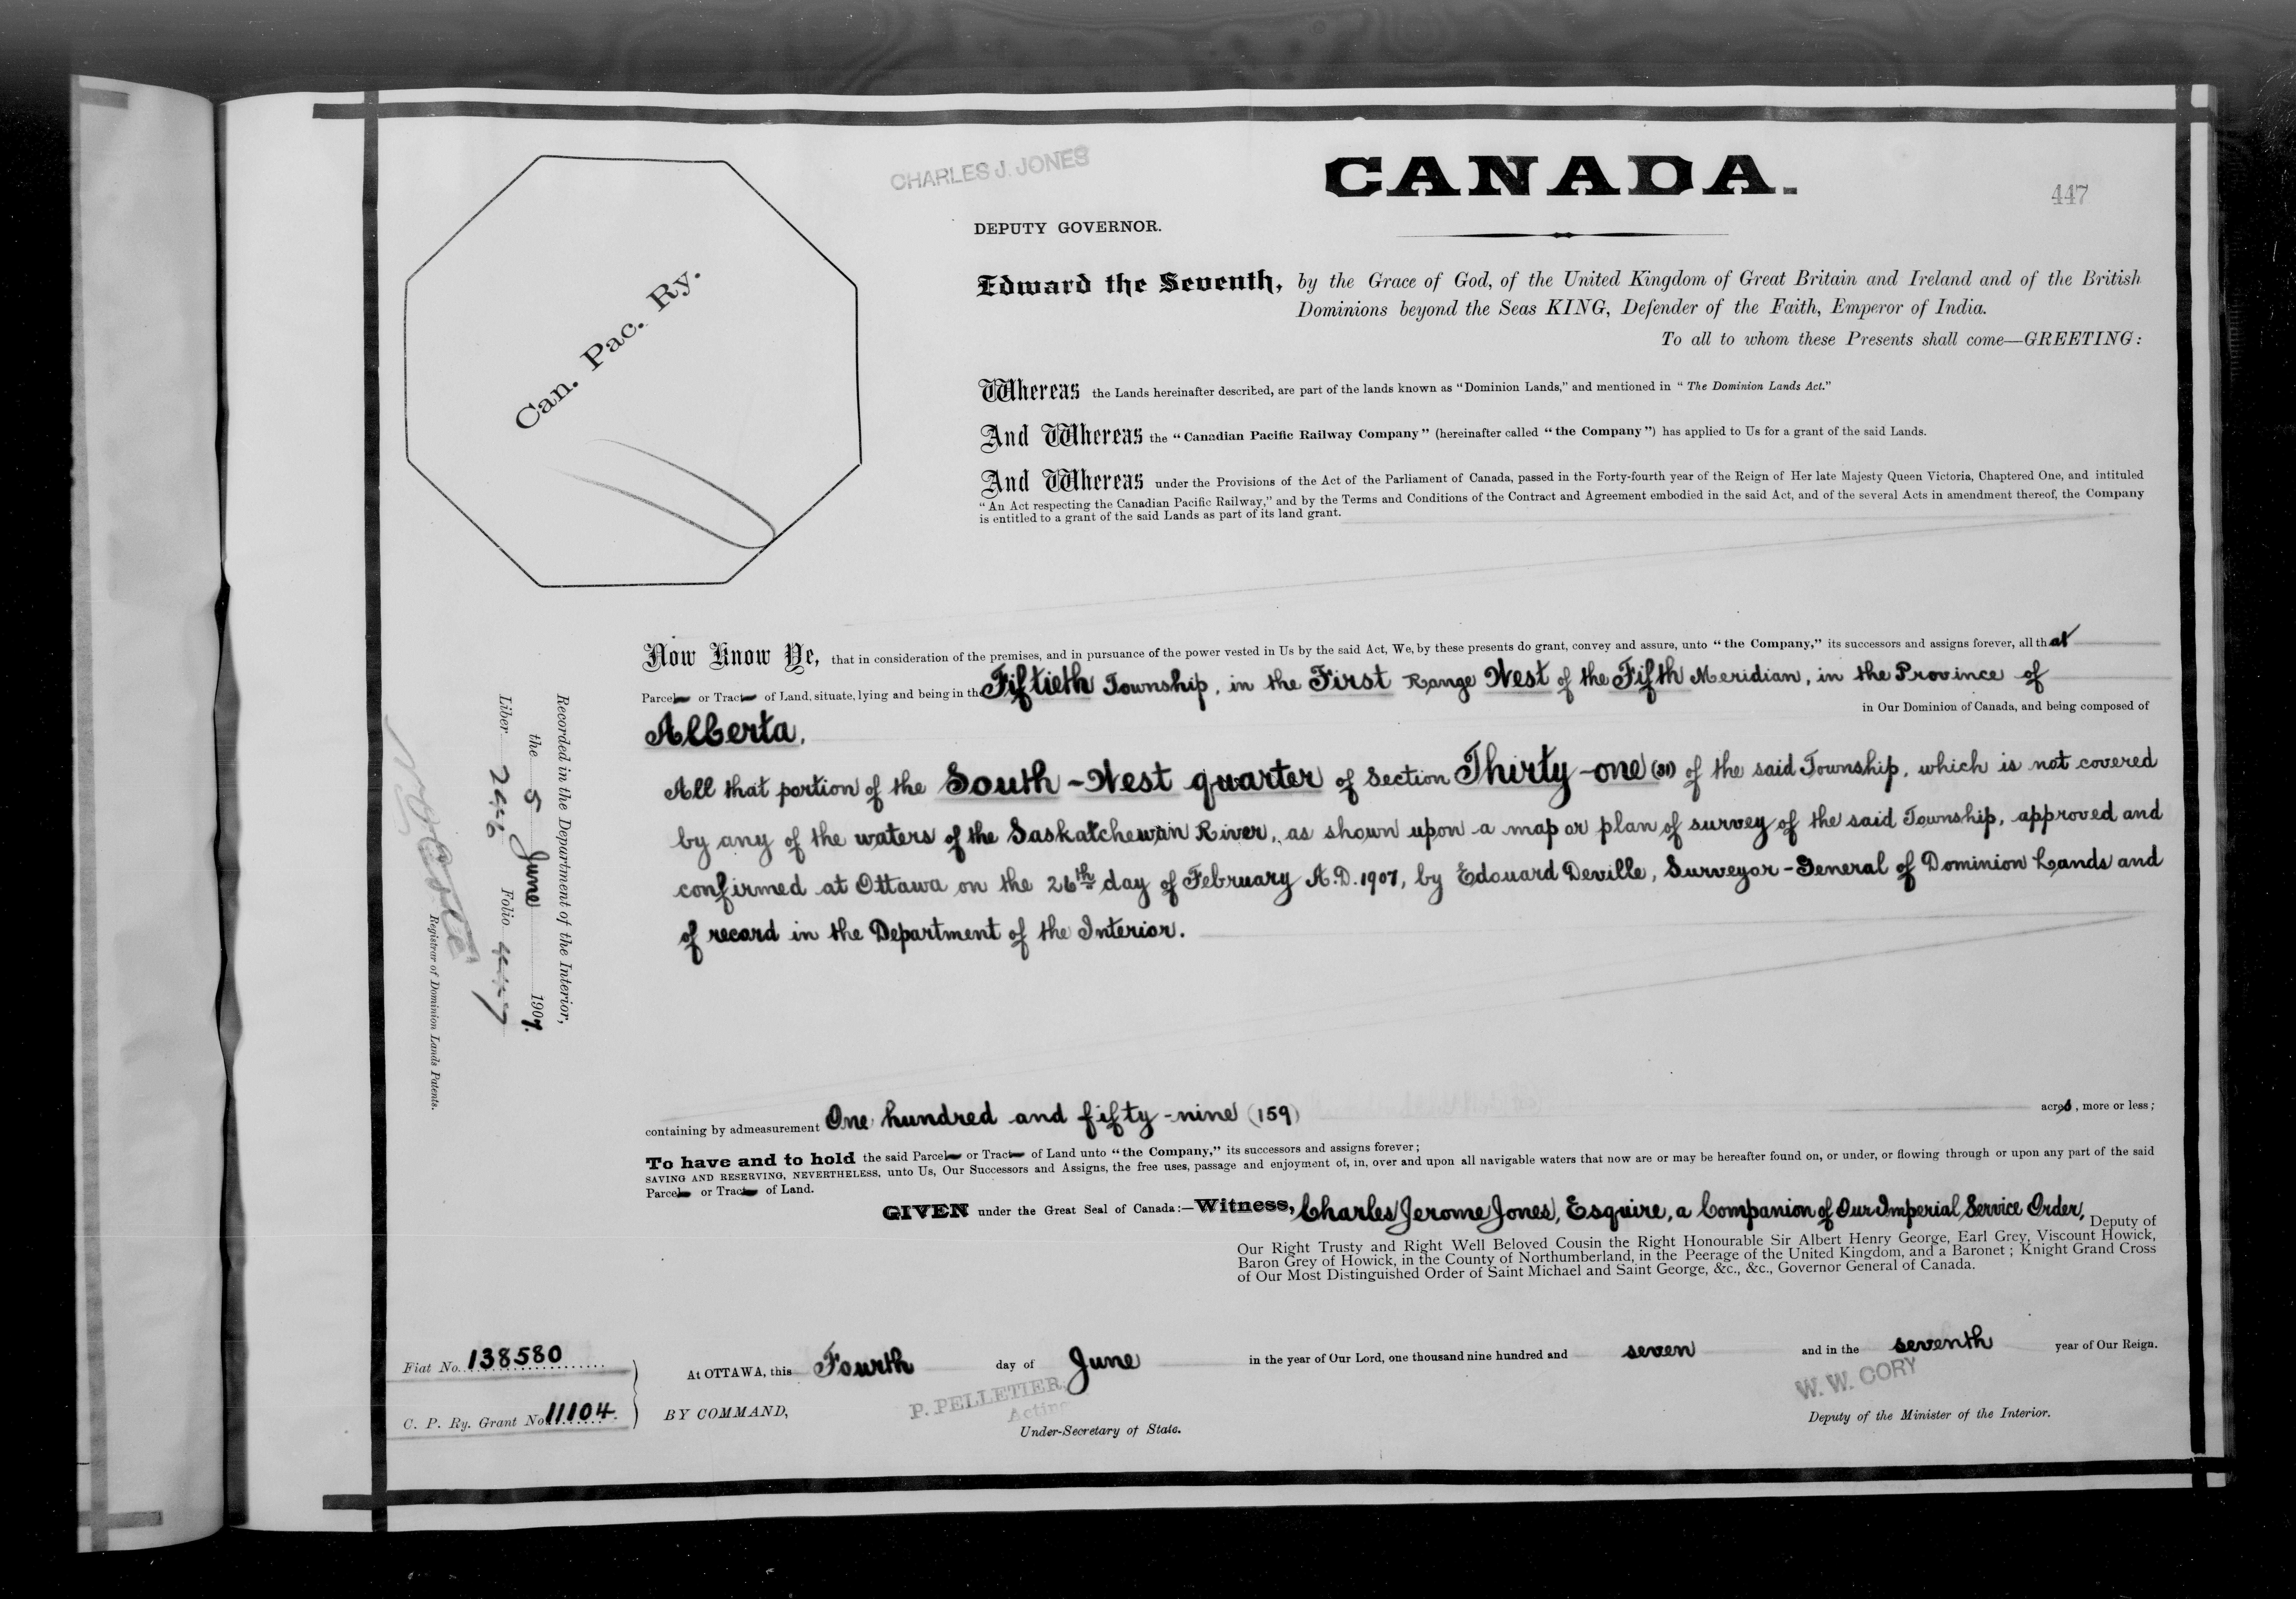 CHARLES J. JONES
CANADA.
447
DEPUTY GOVERNOR.
Can. Pac. Ry.
Edward the Seventh, by the Grace of God, of the United Kingdom of Great Britain and Ireland and of the British
Dominions beyond the Seas KING, Defender of the Faith, Emperor of India.
To all to whom these Presents shall come—GREETING:
Whereas the Lands hereinafter described, are part of the lands known as "Dominion Lands," and mentioned in "The Dominion Lands Act."
And Whereas the "Canadian Pacific Railway Company" (hereinafter called "the Company") has applied to Us for a grant of the said Lands.
And Whereas under the Provisions of the Act of the Parliament of Canada, passed in the Forty-fourth year of the Reign of Her late Majesty Queen Victoria, Chaptered One, and intituled
"An Act respecting the Canadian Pacific Railway," and by the Terms and Conditions of the Contract and Agreement embodied in the said Act, and of the several Acts in amendment thereof, the Company
is entitled to a grant of the said Lands as part of its land grant.
Now Know Ye, that in consideration of the premises, and in pursuance of the power vested in Us by the said Act, We, by these presents do grant, convey and assure, unto "the Company," its successors and assigns forever, all that
Parcel or Tract of Land, situate, lying and being in the Fiftieth Township, in the First Range West of the Fifth Meridian, in the Province of
Alberta, in Our Dominion of Canada, and being composed of
All that portion of the South-West quarter of Section Thirty-one (31) of the said Township, which is not covered
by any of the waters of the Saskatchewan River, as shown upon a map or plan of survey of the said Township, approved and
confirmed at Ottawa on the 26th day of February A.D. 1907, by Edouard Deville, Surveyor-General of Dominion Lands and
of record in the Department of the Interior.
Recorded in the Department of the Interior,
the 5 June 1907.
Liber 246 Folio 447
Registrar of Dominion Lands Patents.
containing by admeasurement One hundred and fifty-nine (159) acres, more or less;
To have and to hold the said Parcel or Tract of Land unto "the Company," its successors and assigns forever;
SAVING AND RESERVING, NEVERTHELESS, unto Us, Our Successors and Assigns, the free uses, passage and enjoyment of, in, over and upon all navigable waters that now are or may be hereafter found on, or under, or flowing through or upon any part of the said
Parcel or Tract of Land.
GIVEN under the Great Seal of Canada:—Witness, Charles Jerome Jones, Esquire, a Companion of Our Imperial Service Order, Deputy of
Our Right Trusty and Right Well Beloved Cousin the Right Honourable Sir Albert Henry George, Earl Grey, Viscount Howick,
Baron Grey of Howick, in the County of Northumberland, in the Peerage of the United Kingdom, and a Baronet; Knight Grand Cross
of Our Most Distinguished Order of Saint Michael and Saint George, &c., &c., Governor General of Canada.
Fiat No. 138580
C. P. Ry. Grant No. 11104.
At OTTAWA, this Fourth day of June in the year of Our Lord, one thousand nine hundred and seven and in the seventh year of Our Reign.
BY COMMAND,
P. PELLETIER,
Acting
Under-Secretary of State.
W. W. CORY
Deputy of the Minister of the Interior.